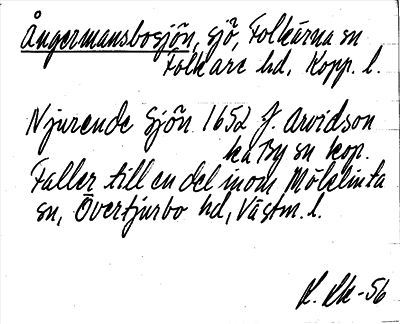 Ångermansbosjön, sjö, Folkärna sn
Folkare hd, Kopp. l.
Njurende Sjön 1652 J. Arvidson
ka By sn kop.
Faller till en del inom Möklinta
sn, Övertjurbo hd, Västm. l.